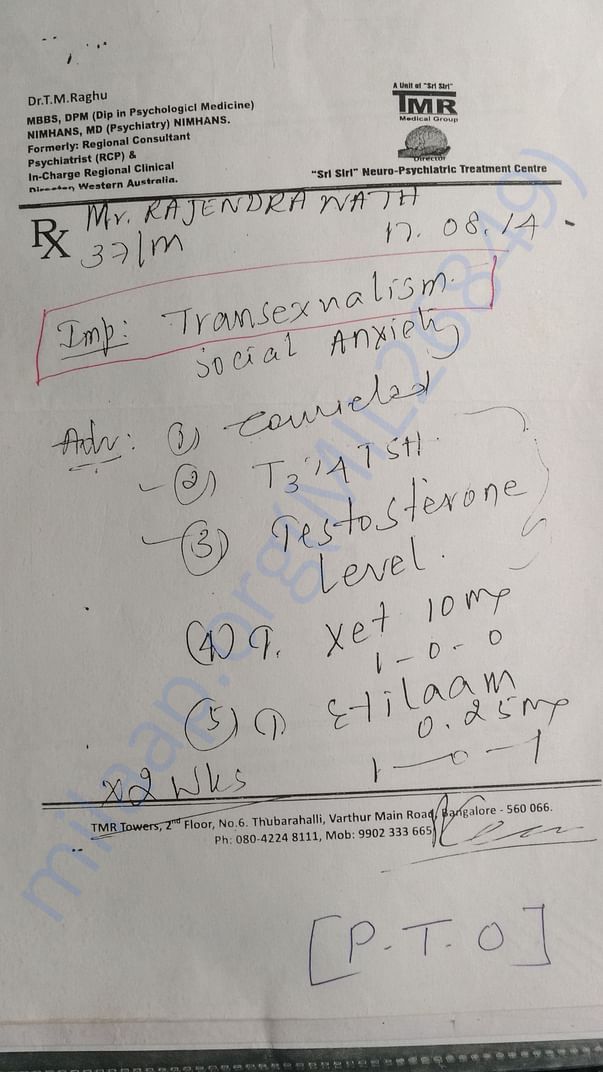 Dr.T.M.Raghu
MBBS, DPM (Dip in Psychologicl Medicine)
NIMHANS, MD (Psychiatry) NIMHANS.
Formerly: Regional Consultant
Psychiatrist (RCP) &
In-Charge Regional Clinical
Western Australia.
A Unit of "Sri Siri"
TMR
Medical Group
Director
"Sri Siri" Neuro-Psychiatric Treatment Centre
Rx
Mr. RAJENDRA NATH
37/m
17.08.14
Imp: Transexualism
Social Anxiety
Adv: (1)
(2) T3 T4 TSH.
(3) Testosterone
Level.
(4) T. Xet 10mg
1-0-0
(5) T Etilaam
0.25mg
1-0-1
x2 wks
TMR Towers, 2nd Floor, No.6. Thubarahalli, Varthur Main Road, Bangalore - 560 066.
Ph: 080-4224 8111, Mob: 9902 333 665
[P.T.O]
milaap.org(MIL26849)